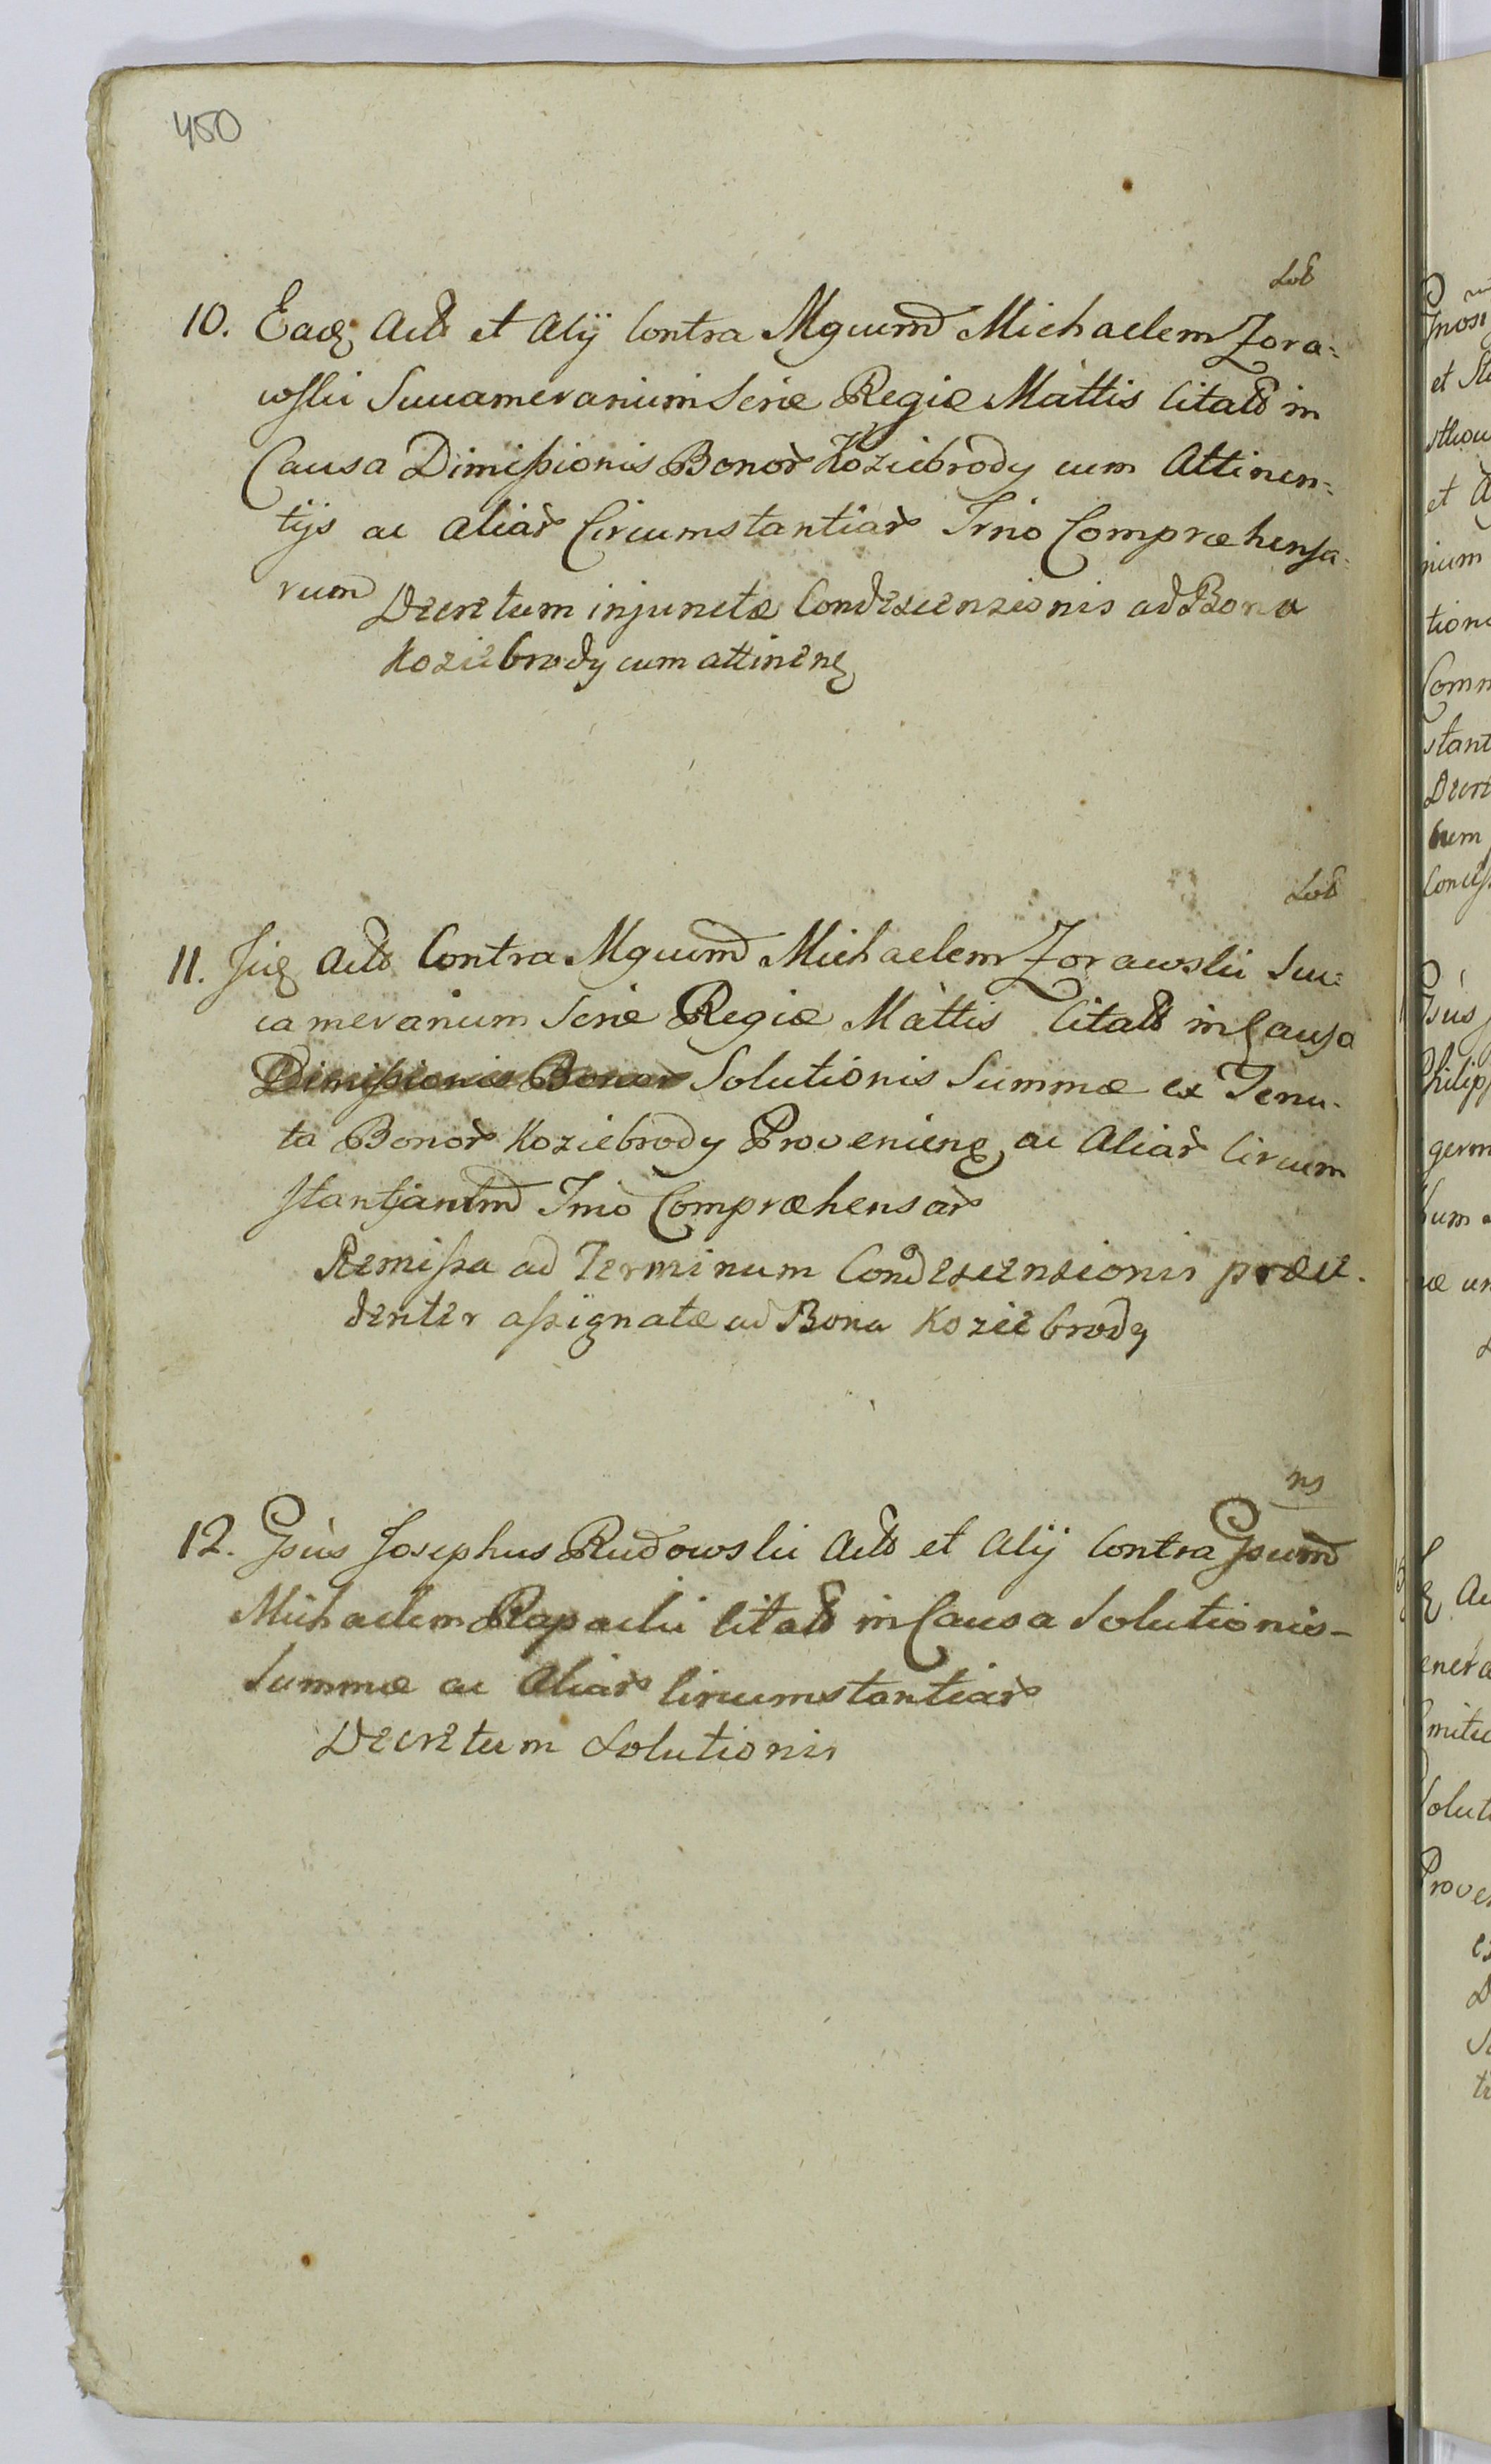 450
Lob
10. Eadq Act et Alij Contra Mgcum Michaelem Zora=
wski Succamerarium Scræ Regiæ Mattis Citat in
Causa Dimissionis Bonor Koziebrody cum Attinen=
tijs ac aliar Circumstantiar Trno Compræhensa=
rum
Decretum injunctæ Condescensionis ad Bona
Koziebrody cum attinen
Lob
11. Act Contra Mgcum Michaelem Zorawski Suc=
camerarium Scræ Regiæ Mattis Citat in Causa
Dimissionis Bonor Solutionis Summæ ex Tenu-
ta Bonor Koziebrody Provenien ac Aliar Circum
stantiarum Trno Compræhensar
Remissa ad Terminum Condescensionis præce-
denter assignatæ ad Bona Koziebrody
ns
12. Gsus Josephus Rudowski Act et Alij Contra Gsum
Michaelem Rapacki Citat in Causa Solutionis-
Summæ ac Aliar Circumstantiar
Decretum Solutionis